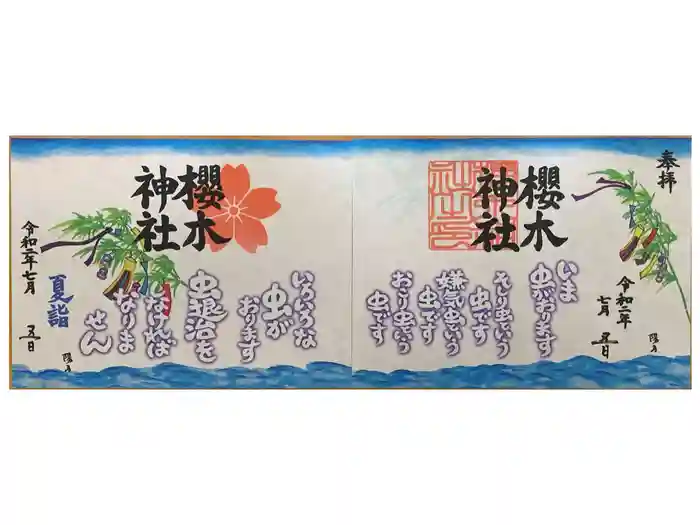 奉拝
櫻木
神社
いま
虫がおります
そり虫という
虫です
嫌気虫という
虫です
おこり虫という
虫です
令和二年
七月
五日
櫻木
神社
いろいろな
虫が
おります
虫退治を
しなければ
なりま
せん
夏詣
令和二年七月
五日